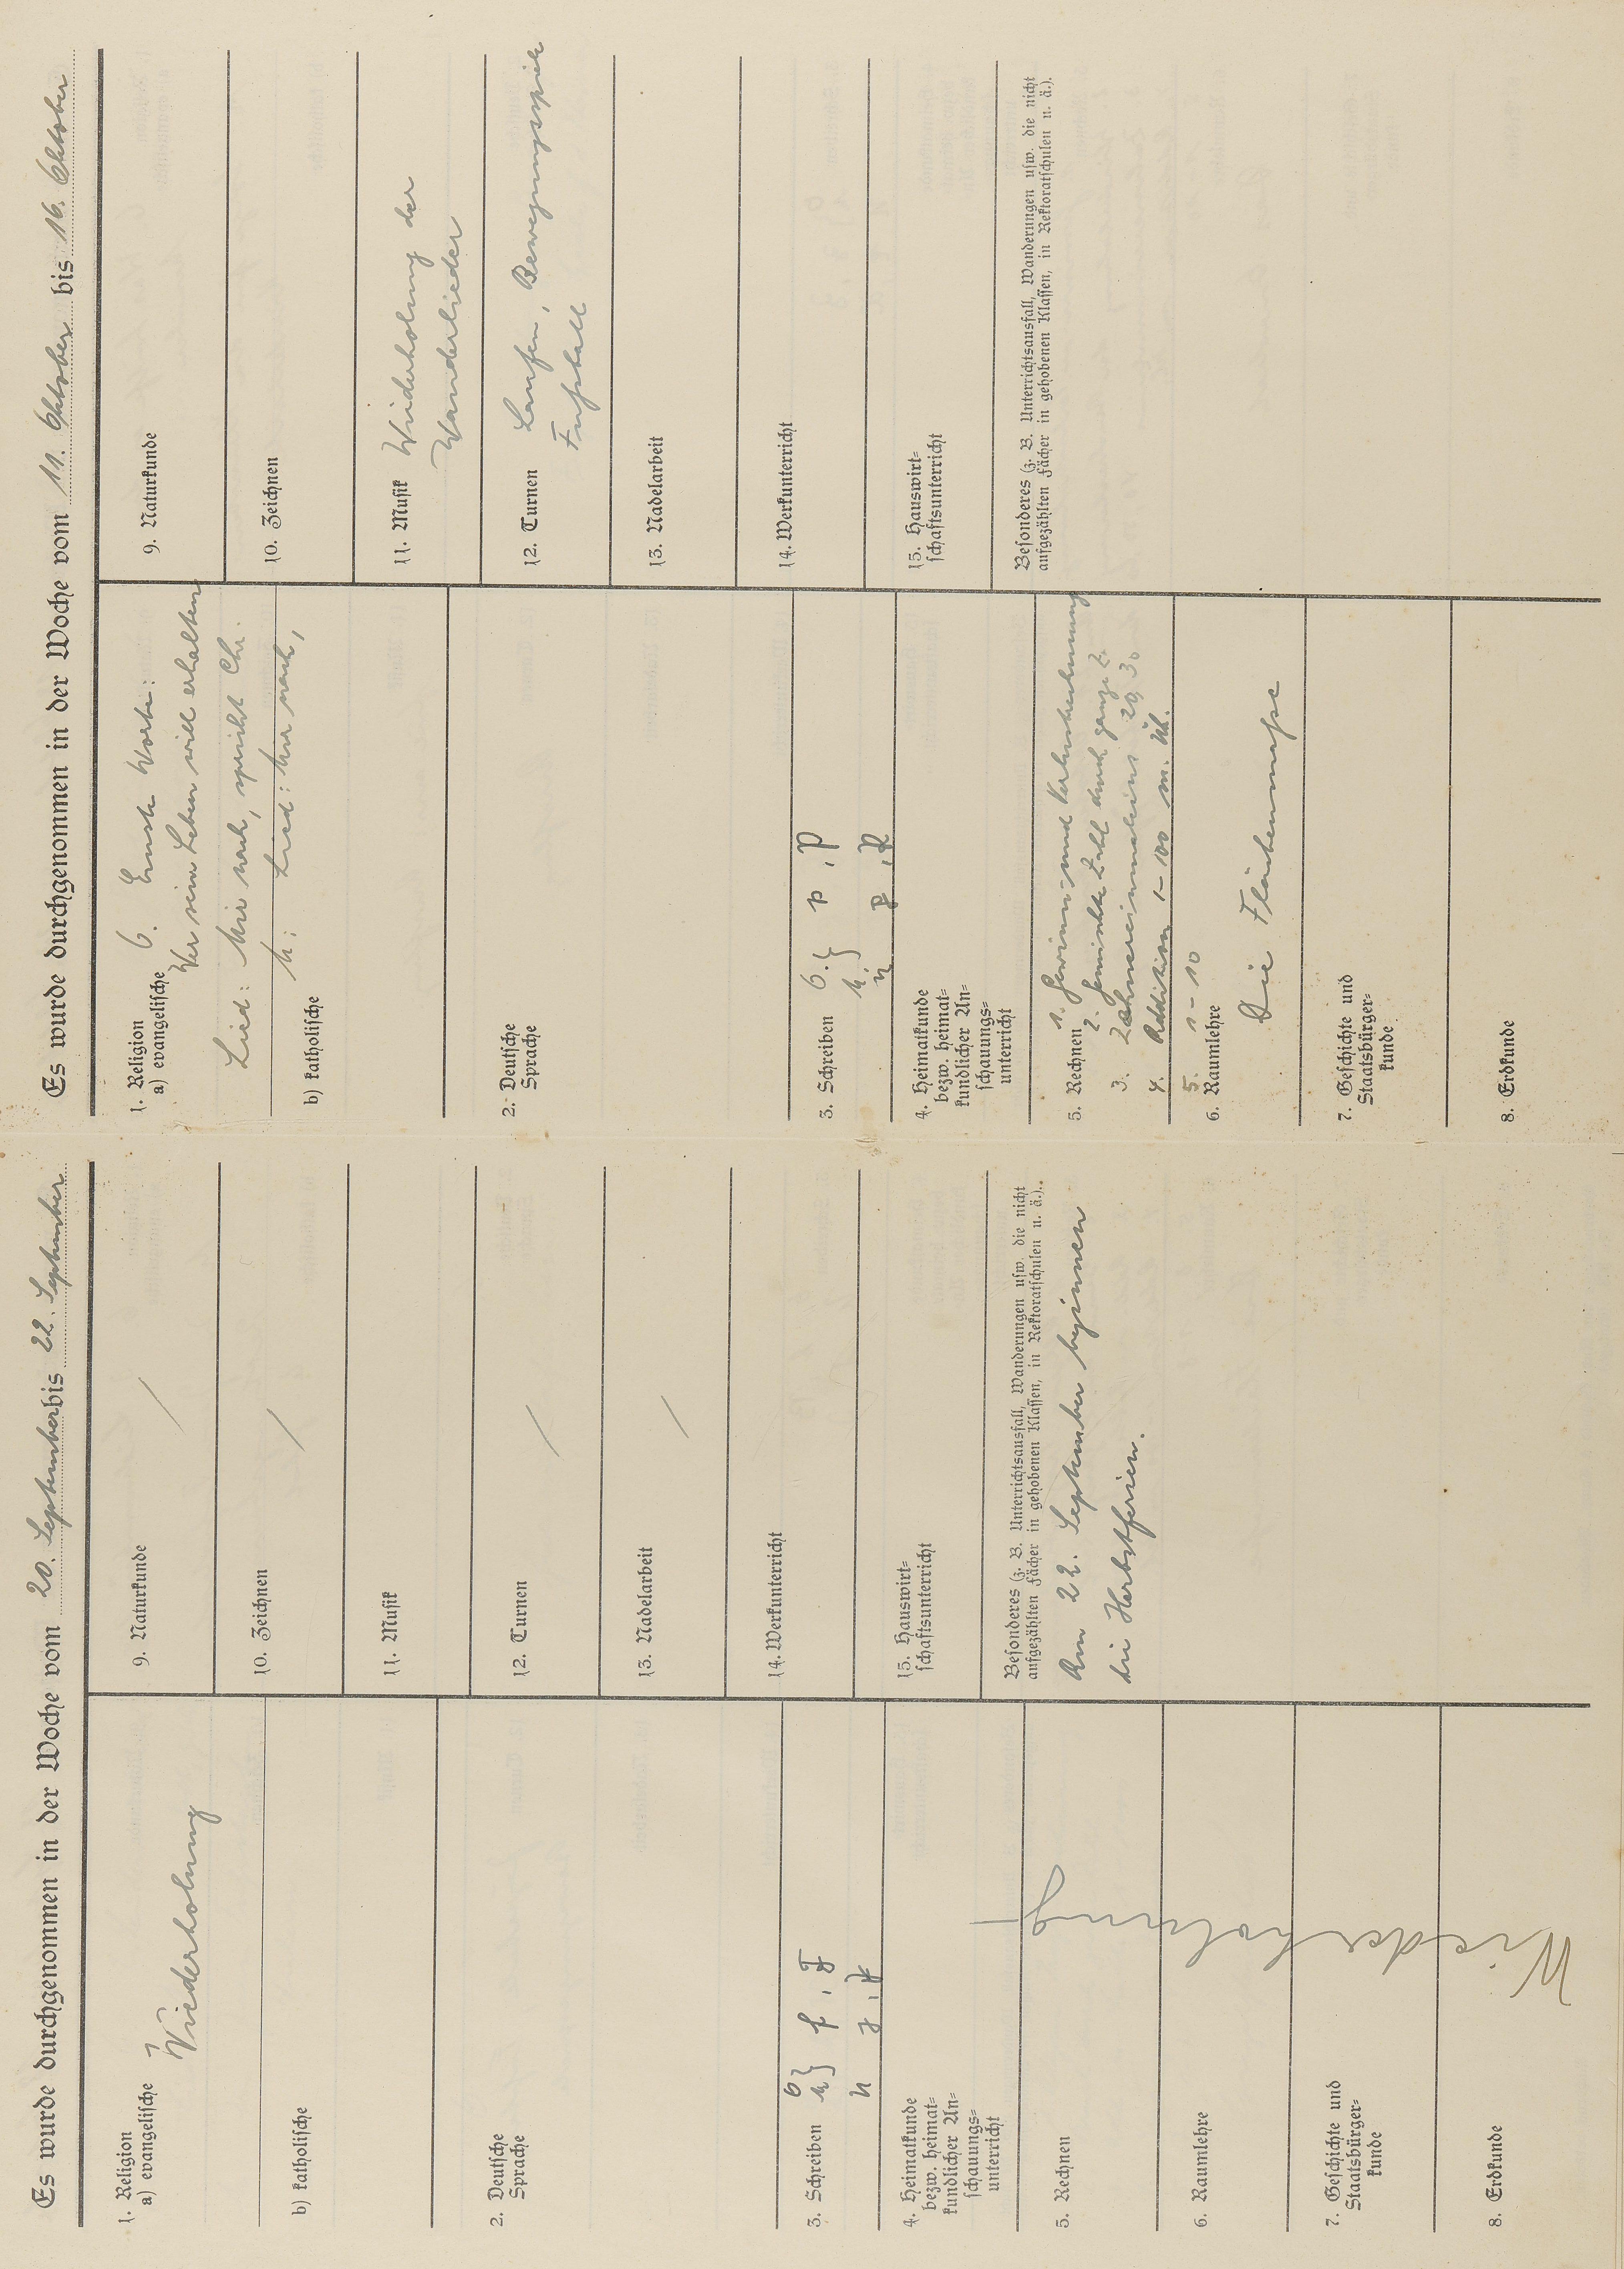 Es wurde durchgenommen in der Woche vom 20. September bis 22. September
1. Religion
a) evangelische
Wiederholung
b) katholische
2. Deutsche
Sprache
3. Schreiben O } f, F
M
U
4. Heimatkunde
bezw. heimat=
kundlicher An=
schauungs=
unterricht
5. Rechnen
6. Raumlehre
7. Geschichte und
Staatsbürger=
kunde
8. Erdkunde
Wiederholung
9. Naturkunde /
10. Zeichnen /
11. Musik
12. Turnen /
13. Nadelarbeit /
14. Werkunterricht
15. Hauswirt=
schaftsunterricht
Besonderes (z. B. Unterrichtsausfall, Wanderungen usw. die nicht
aufgezählten Fächer in gehobenen Klassen, in Rektoratschulen u. ä.).
Am 22. September beginnen
die Herbstferien.
Es wurde durchgenommen in der Woche vom 11. Oktober bis 16. Oktober
1. Religion
a) evangelische O. Ernste Worte:
Wer sein Leben will erhalten
Lied: Mir nach, spricht Chr.
M: Lied: Mir nach,
b) katholische
2. Deutsche
Sprache
3. Schreiben O. } p, P
M.
U
4. Heimatkunde
bezw. heimat=
kundlicher An=
schauungs=
unterricht
5. Rechnen 1. Gewinn- und Verlustrechnung
2. Gemischte Zahl durch ganze Z.
3. Zehnereinmaleins 20, 30
4. Addition 1-100 m. Ü.
5. 1-10
6. Raumlehre
Die Flächenmaße
7. Geschichte und
Staatsbürger=
kunde
8. Erdkunde
9. Naturkunde
10. Zeichnen
11. Musik Wiederholung der
Wanderlieder
12. Turnen Laufen, Bewegungsspiele
Fußball
13. Nadelarbeit
14. Werkunterricht
15. Hauswirt=
schaftsunterricht
Besonderes (z. B. Unterrichtsausfall, Wanderungen usw. die nicht
aufgezählten Fächer in gehobenen Klassen, in Rektoratschulen u. ä.).